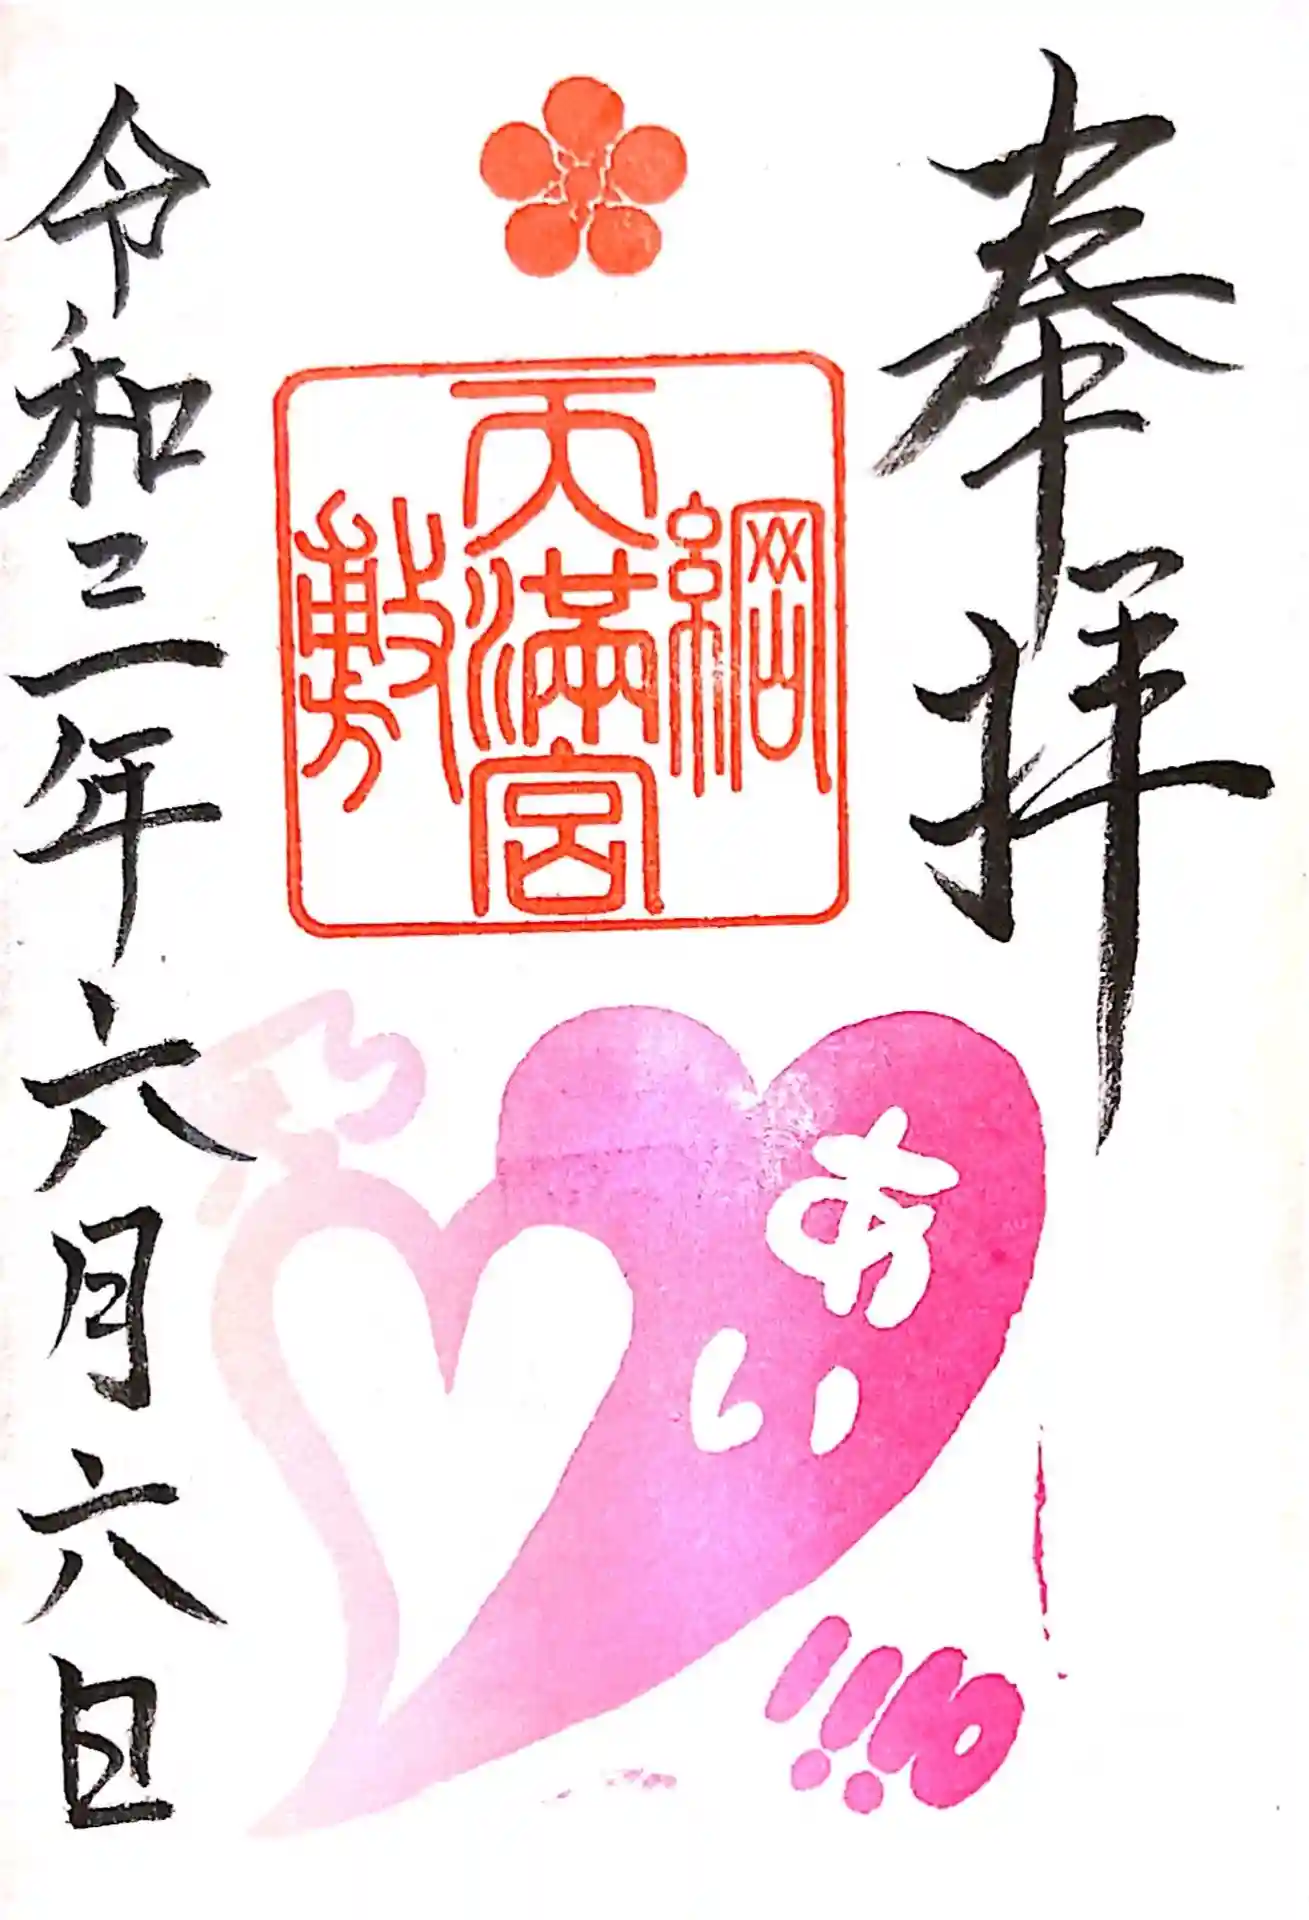 奉拝
綱敷
天満宮
あい
令和三年六月六日